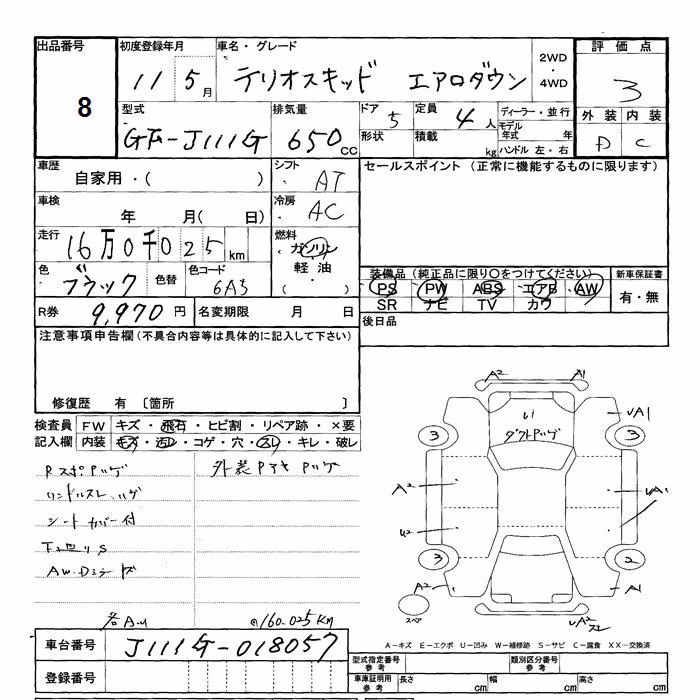 出品番号
8
初度登録年月
11 5月
車名・グレード
テリオスキッド エアロダウン
2WD
・
4WD
評価点
3
外装 内装
D C
型式
GF-J111G
排気量
650cc
ドア
5
形状
定員
4人
積載
kg
ディーラー・並行
モデル
年式 年
ハンドル 左・右
車歴
自家用・( )
シフト
AT
セールスポイント (正常に機能するものに限ります)
車検
年 月( 日)
冷房
AC
走行
16万0千025km
燃料
ガソリン
軽油
( )
色
ブラック
色替
色コード
6A3
装備品 (純正品に限り○をつけてください)
PS PW ABS エアB AW
SR ナビ TV カワ
新車保証書
有・無
R券
9,970円
名変期限 月 日
後日品
注意事項申告欄(不具合内容等は具体的に記入して下さい)
修復歴 有 〔箇所 〕
検査員
記入欄
FW キズ・飛石・ヒビ割・リペア跡・×要
内装 キズ・汚レ・コゲ・穴・スレ・キレ・破レ
シートカバー付
各AU
160.025KM
車台番号
J111G-018057
登録番号
A2 A1
UA1
3 3
A2
UA1
U2
3 2
A2 A1
スペア
UA2
A-キズ E-エクボ U-凹み W-補修跡 S-サビ C-腐食 XX-交換済
型式指定番号
参考
類別区分番号
参考
車庫証明用
参考
長さ cm
幅 cm
高さ cm